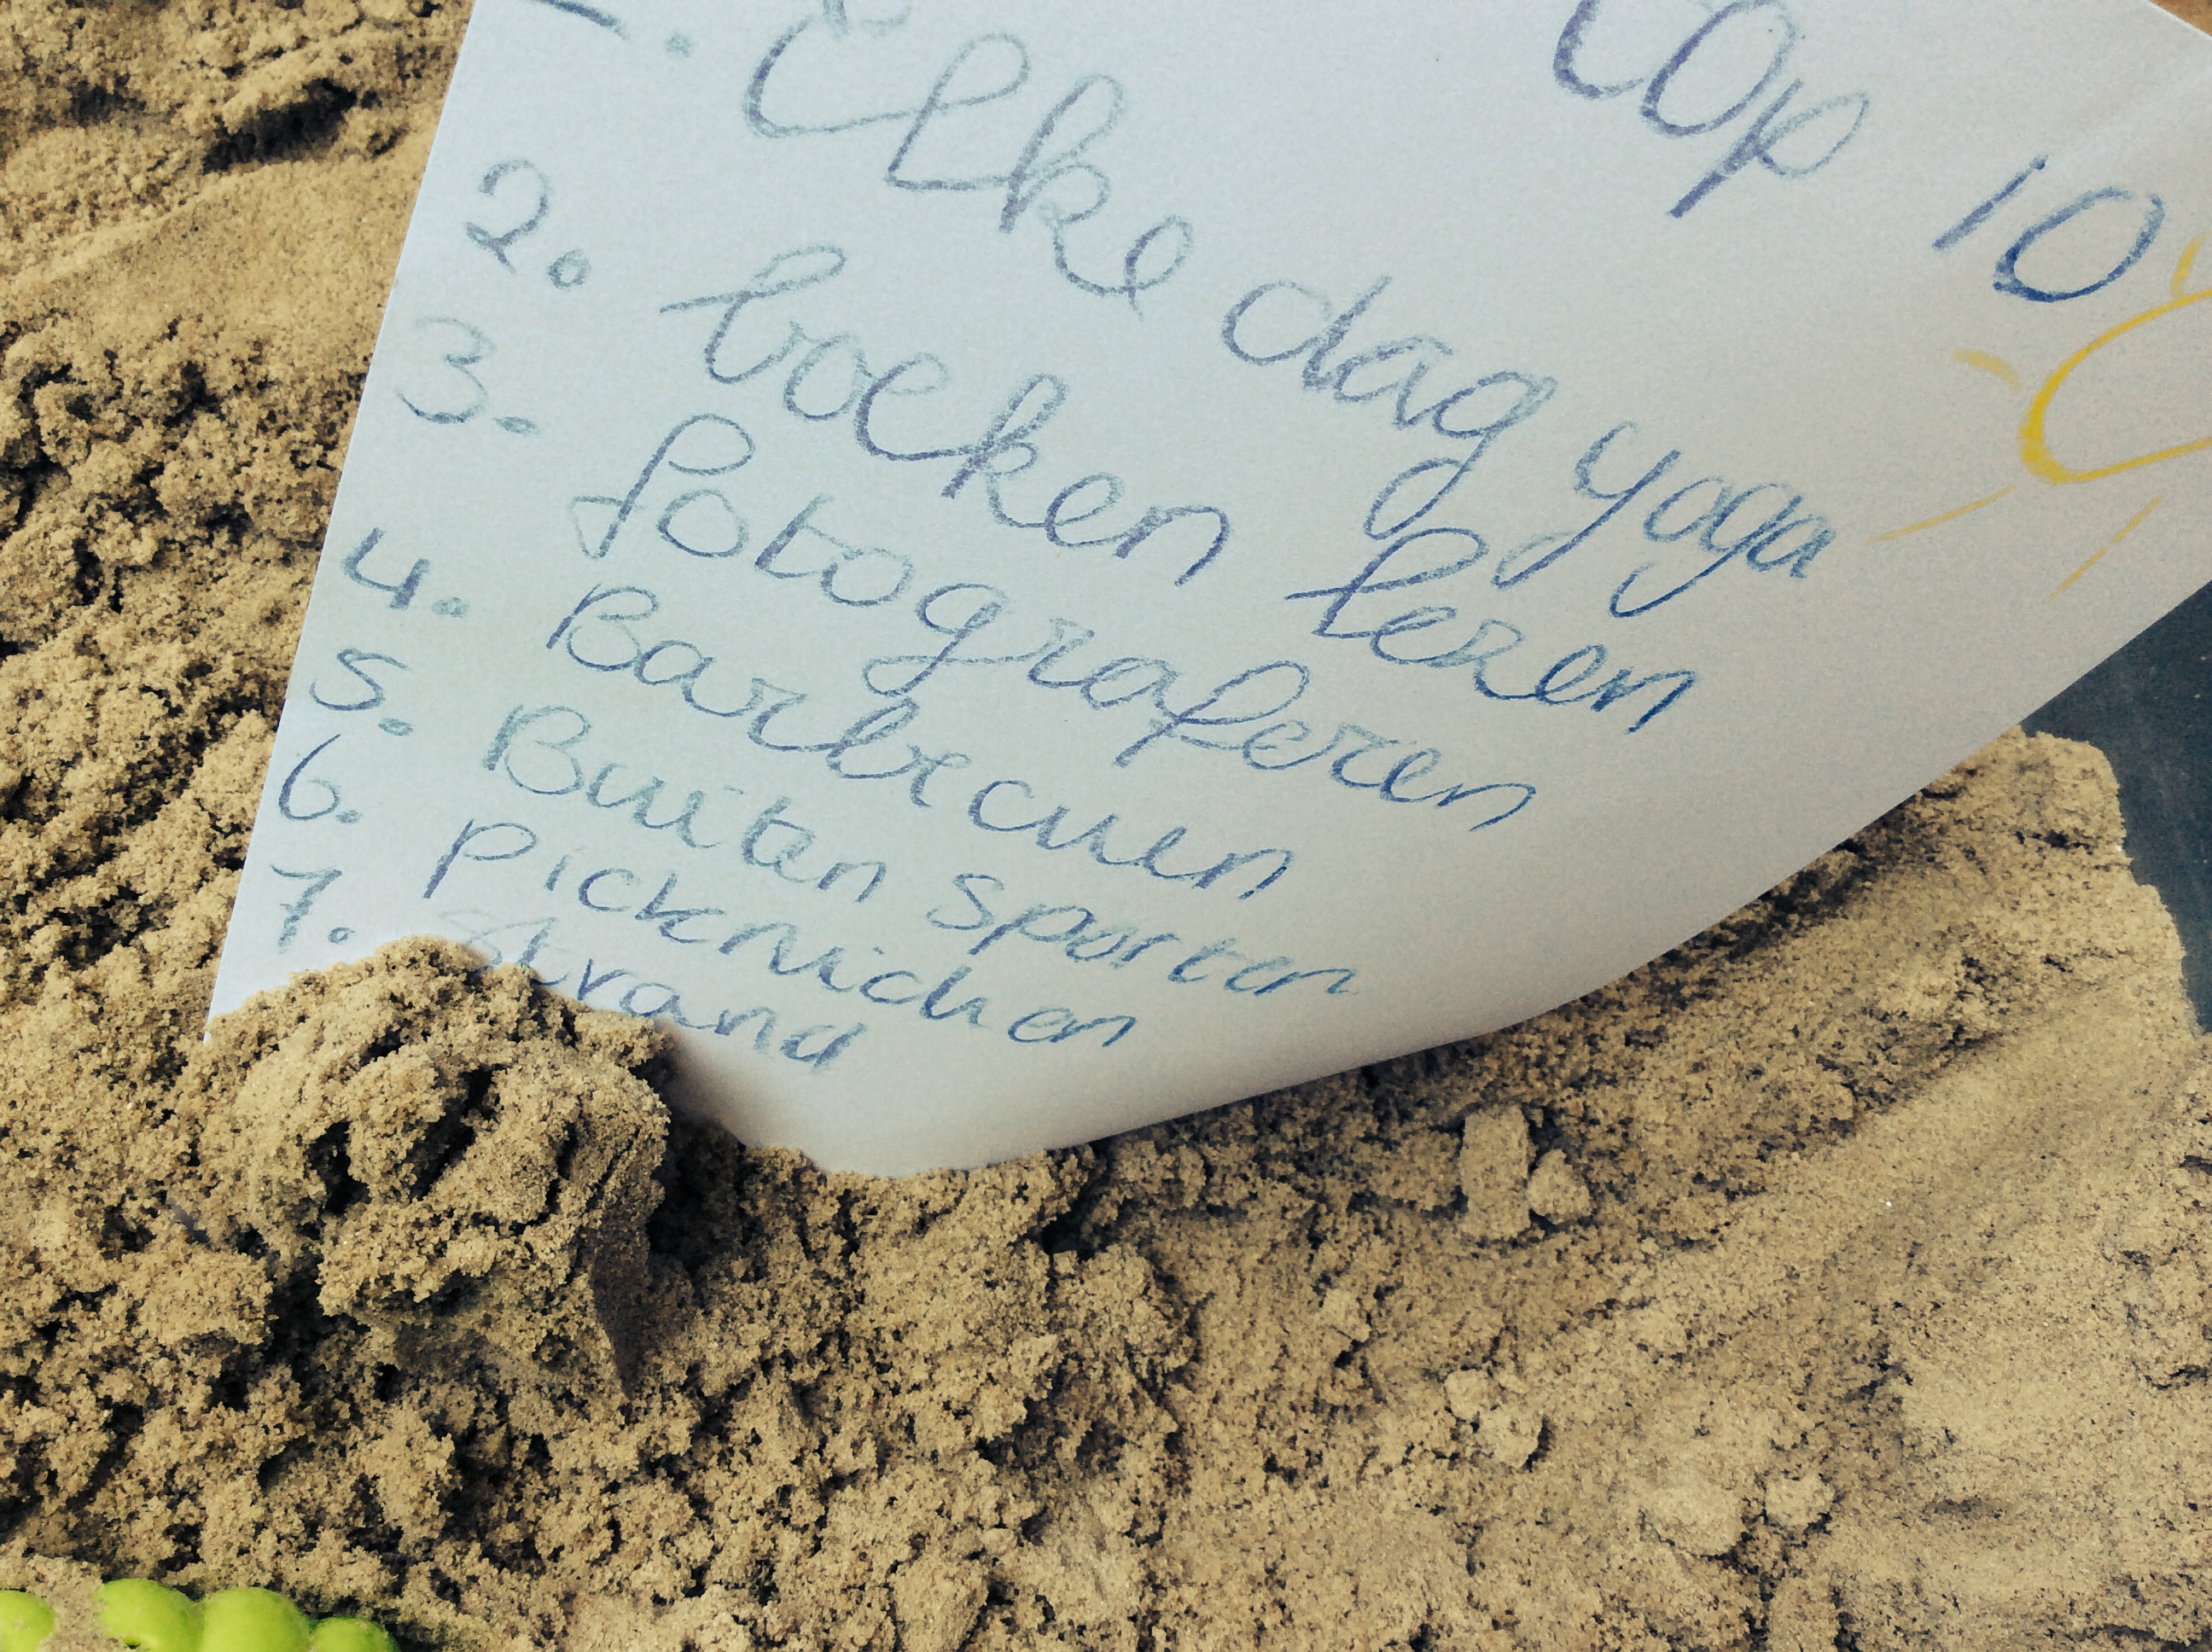 top 10
1. Elke dag yoga
2. boeken lezen
3. fotograferen
4. Barbecuen
5. Buiten sporten
6. Picknicken
7. Strand